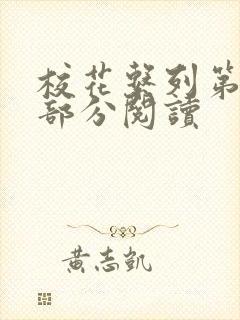 校花繫列第
部分閱讀
黃志凱